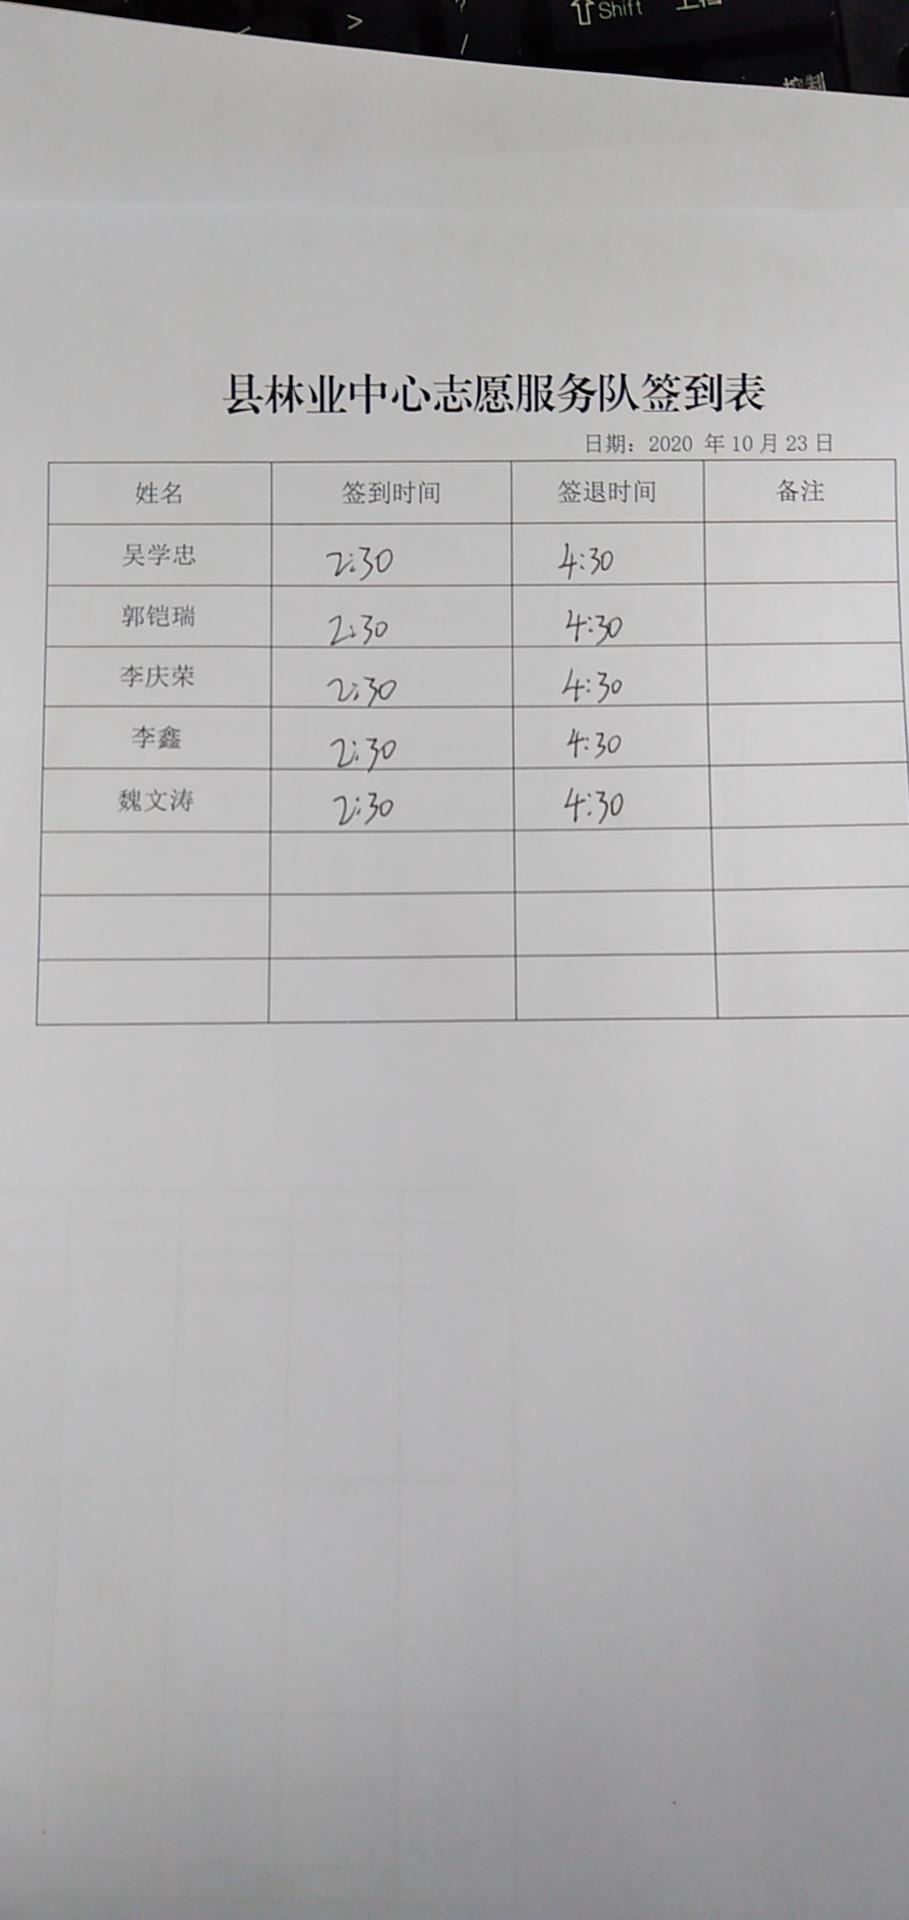 >
?
/
⇧Shift
控制
县林业中心志愿服务队签到表
日期：2020 年10月23日
姓名 签到时间 签退时间 备注
吴学忠 2:30 4:30
郭铠瑞 2:30 4:30
李庆荣 2:30 4:30
李鑫 2:30 4:30
魏文涛 2:30 4:30